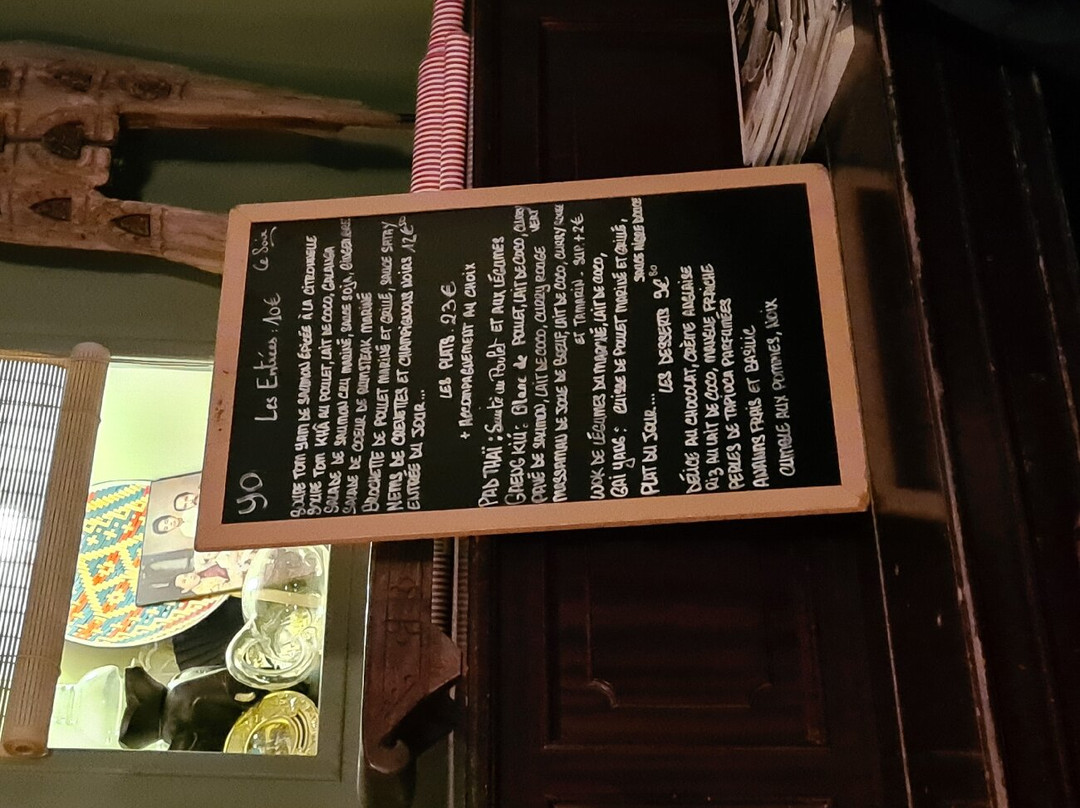 YO
Les Entrées : 10€ Ce Soir
SOUPE TOM YAM DE SAUMON ÉPICÉE À LA CITRONNELLE
SOUPE TOM KHÄ AU POULET, LAIT DE COCO, GALANGA
SALADE DE SAUMON CRU MARINÉ, SAUCE SOJA, GINGEMBRE
SALADE DE COEUR DE RUMSTEAK MARINÉ
BROCHETTE DE POULET MARINÉ ET GRILLÉ, SAUCE SATAY
NEMS DE CREVETTES ET CHAMPIGNONS NOIRS 12€50
ENTRÉE DU JOUR...
LES PLATS : 23€
+ ACCOMPAGNEMENT AU CHOIX
PAD THAÏ : Sauté au Poulet ET AUX LÉGUMES
GAENG KIEW : Blanc de POULET, LAIT DE COCO, CURRY VERT
PAVÉ DE SAUMON LAIT DE COCO, CURRY ROUGE
MASSAMAN DE JOUE DE BOEUF, LAIT DE COCO, CURRY ROUGE
ET TAMARIN . SUP. + 2€
WOK DE LÉGUMES DU MARCHÉ, LAIT DE COCO,
GAI YANG : CUISSE DE POULET MARINÉ ET GRILLÉ,
SAUCE AIGRE DOUCE
PLAT DU JOUR...
LES DESSERTS 9€50
DÉLICE AU CHOCOLAT, CRÈME ANGLAISE
RIZ AU LAIT DE COCO, MANGUE FRAÎCHE
PERLES DE TAPIOCA PARFUMÉES
ANANAS FRAIS ET BASILIC
CRUMBLE AUX POMMES, NOIX